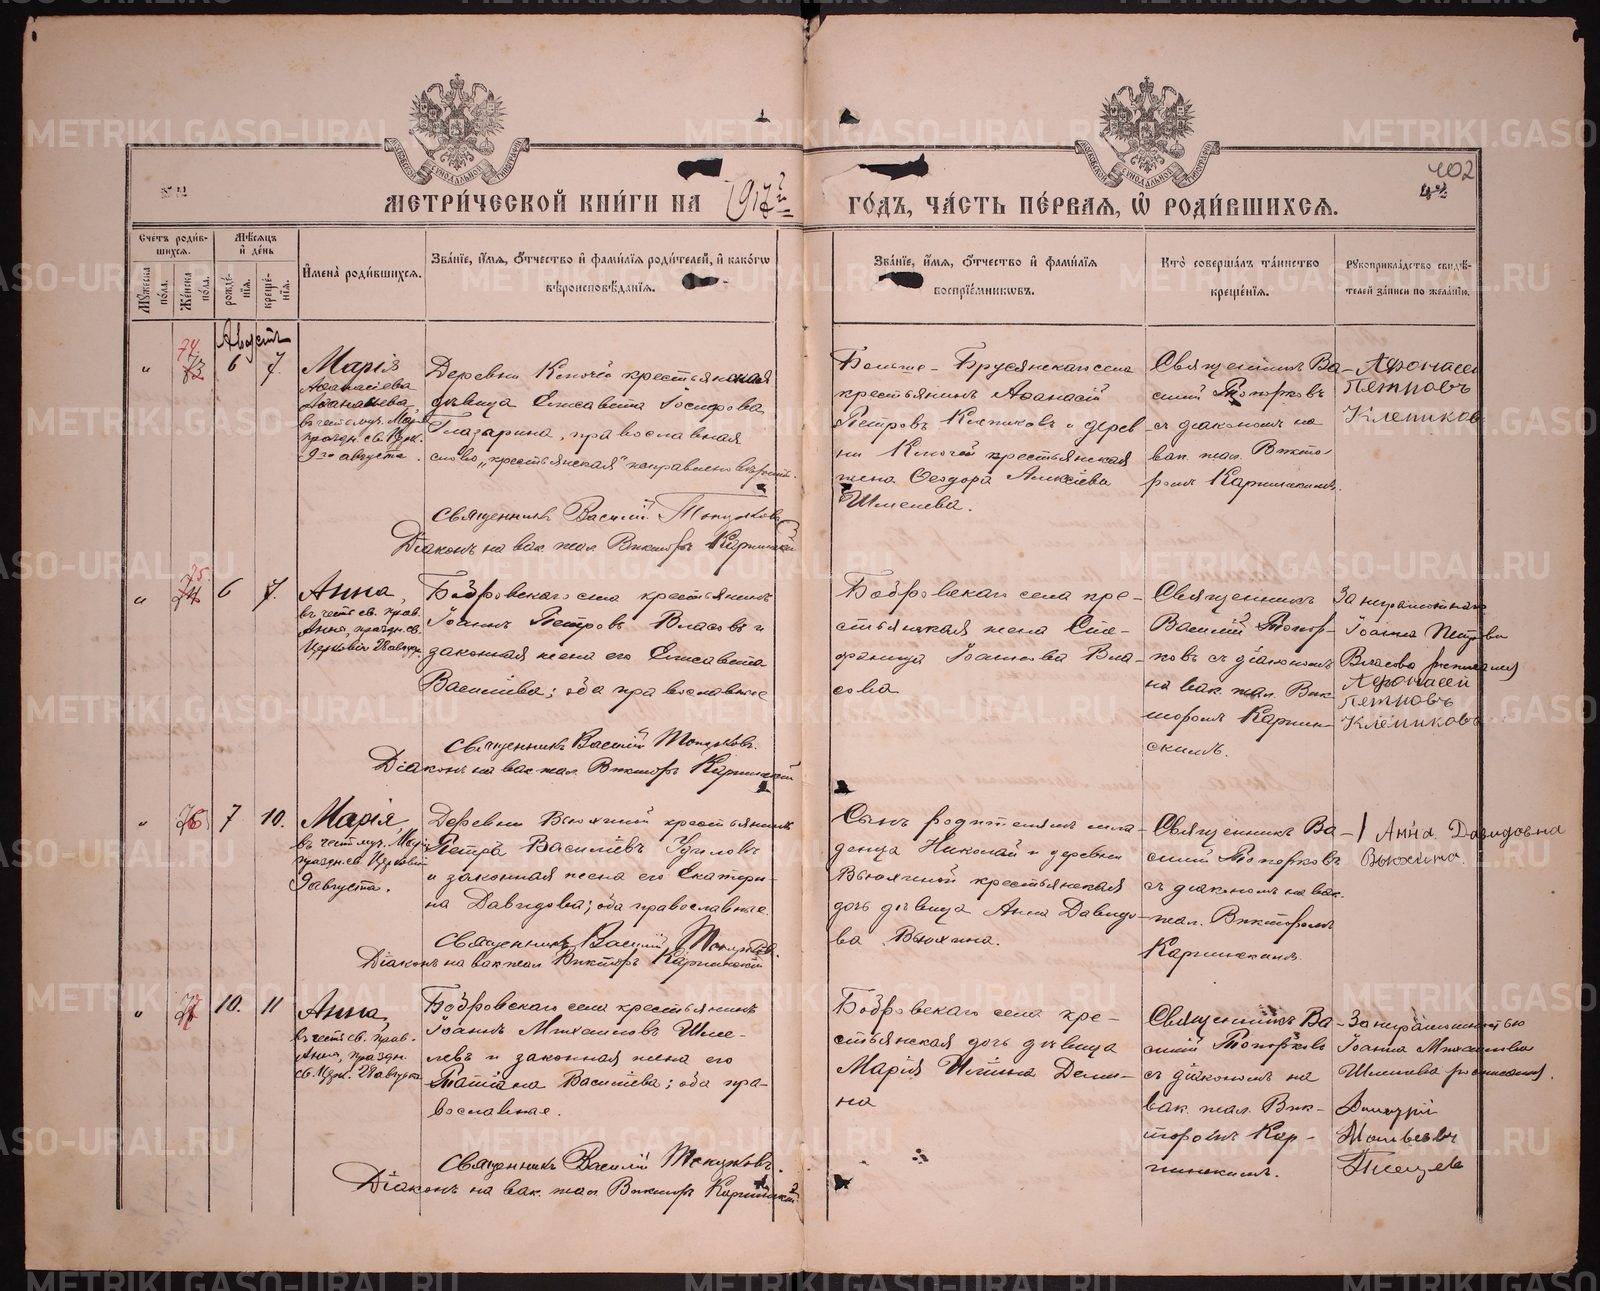 МЕТРИЧЕСКОЙ КНИГИ НА 1917 й
ГОДЪ, ЧАСТЬ ПЕРВАЯ, Ѡ РОДИВШИХСЯ.
402
Счетъ родив-
шихся.
Мужеска
пола.
Женска
пола.
Мѣсяцъ
и день
рожде-
нія.
креще-
нія.
Имена родившихся.
Званіе, имя, отчество и фамилія родителей, и какогѡ
вѣроисповѣданія.
Званіе, имя, отчество и фамилія
воспріемникѡвъ.
Кто совершалъ таинство
крещенія.
Рукоприкладство свидѣ-
телей записи по желанію.
Августъ
„ 74. 73 6 7.
Марія
Аѳанасіева
въ честь муч. Маріи
праздн. св. Церк.
9го августа.
Деревни Ключей крестьянская
дѣвица Елисавета
Глазырина, православная
слово „крестьянская" исправлено
Священникъ Василій Топорковъ
Діаконъ на вак. псал. Викторъ Карпинскій
Больше-Брусянскаго села
крестьянинъ Аѳанасій
Петровъ Клепиковъ и дерев
ни Ключей крестьянская
жена Ѳеодора Алексіева
Шмелева.
Священникъ Ва-
силій Топорковъ
съ діакономъ на
вак. псал. Викто-
ромъ Карпинскимъ.
Афонасей
Петровъ
Клепиковъ
„ 75. 74 6 7.
Анна,
въ честь св. прав.
Анны, праздн. св.
Церковію 28 августа.
Бобровскаго села крестьянинъ
Іоаннъ Петровъ Власовъ и
законная жена его Елисавета
Василіева; оба православные
Священникъ Василій Топорковъ.
Діаконъ на вак. псал. Викторъ Карпинскій
Бобровскаго села кре-
стьянская жена Сте-
фанида Іоаннова Вла-
сова
Священникъ
Василій Топор-
ковъ съ діакономъ
на вак. псал. Вик-
торомъ Карпин-
скимъ.
За неграмотнаго
Іоанна Петрова
Власова росписался
Афонасей
Петровъ
Клепиковъ
„ 76 7 10.
Марія,
въ честь муч. Маріи
праздн. св. Церковію
9 августа.
Деревни Вьюхиной крестьянинъ
Петръ Василіевъ
и законная жена его Екатери-
на Давидова; оба православные.
Священникъ Василій Топорковъ.
Діаконъ на вак. псал. Викторъ Карпинскій
Сынъ родителей мла-
денца Николай и деревни
Вьюхиной крестьянская
дочь дѣвица Анна Давидо-
ва Вьюхина.
Священникъ Ва-
силій Топорковъ
съ діакономъ на вак.
псал. Викторомъ
Карпинскимъ.
Анна Давидовна
Вьюхина.
„ 77 10. 11
Анна,
въ честь св. прав.
Анны, праздн.
св. Церк. 28 августа
Бобровскаго села крестьянинъ
Іоаннъ Михаиловъ Шме-
левъ и законная жена его
Татіана Василіева; оба пра-
вославные.
Священникъ Василій Топорковъ.
Діаконъ на вак. псал. Викторъ Карпинскій
Бобровскаго села кре-
стьянская дочь дѣвица
Марія Ильина Деми-
на
Священникъ Ва-
силій Топорковъ
съ діакономъ на
вак. псал. Вик-
торомъ Кар-
пинскимъ.
За неграмотностью
Іоанна Михаилова
Шмелева росписался.
Дмитрій